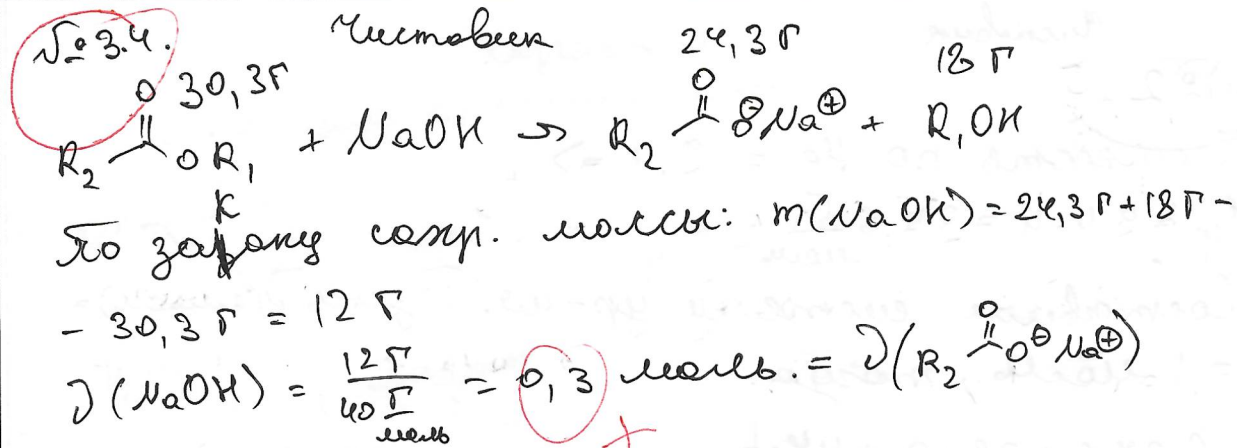 № 3.4. Чистовик
30,3г 24,3 г 18 г
R₂ C(=O) O R₁ + NaOH → R₂ C(=O) O⊖Na⊕ + R₁OH
По закону сохр. массы: m(NaOH) = 24,3 г + 18 г -
- 30,3 г = 12 г
ν(NaOH) = 12 г / 40 г/моль = 0,3 моль. = ν(R₂ C(=O) O⊖ Na⊕)